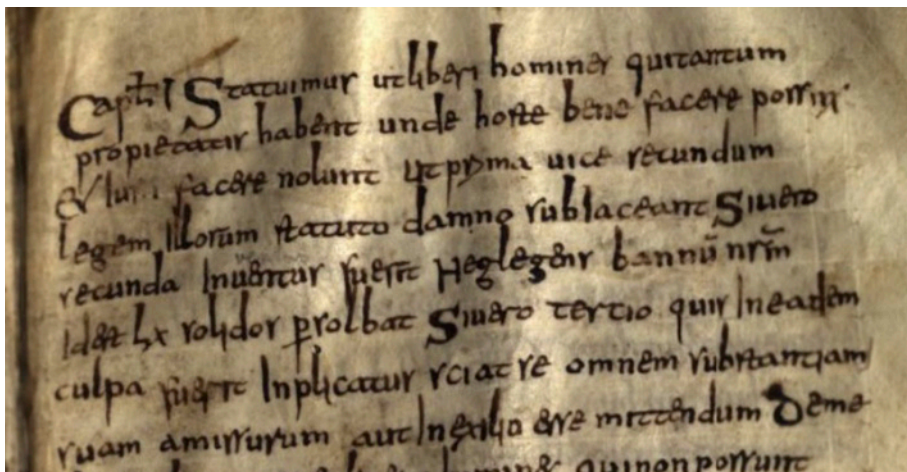 Capitl I Statuimus ut liberi homines qui tantum
propietatis habent unde hoste bene facere possin
et iussi facere nolunt ut pryma uice secundum
legem illorum statuto damno subiaceant Si uero
secunda Inuentus fuerit Neglegens bannū nrm̄
Id est Lx solidos p̲solbat Si uero tertio quis In eadem
culpa fuerit Inplicatus sciat se omnem substantiam
suam amissurum aut In exilio esse mittendum De me
qui non possunt